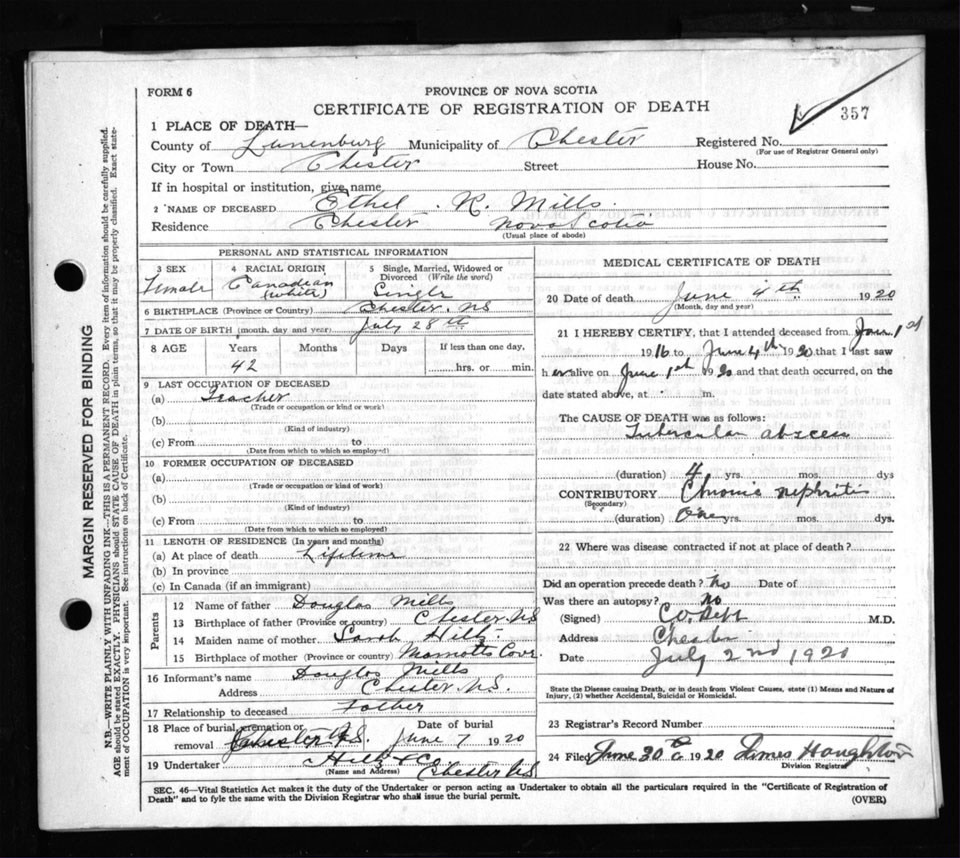 FORM 6
PROVINCE OF NOVA SCOTIA
CERTIFICATE OF REGISTRATION OF DEATH
357
1 PLACE OF DEATH—
County of Lunenburg Municipality of Chester Registered No.
(For use of Registrar General only)
City or Town Chester Street House No.
If in hospital or institution, give name
2 NAME OF DECEASED Ethel R. Mills
Residence Chester Nova Scotia
(Usual place of abode)
PERSONAL AND STATISTICAL INFORMATION
3 SEX Female
4 RACIAL ORIGIN Canadian (white)
5 Single, Married, Widowed or Divorced (Write the word) Single
6 BIRTHPLACE (Province or Country) Chester. NS
7 DATE OF BIRTH (month, day and year) July 28th
8 AGE Years Months Days If less than one day,
42 hrs. or min.
9 LAST OCCUPATION OF DECEASED
(a) Teacher
(Trade or occupation or kind or work)
(b)
(Kind of industry)
(c) From to
(Date from which to which so employed)
10 FORMER OCCUPATION OF DECEASED
(a)
(Trade or occupation or kind of work)
(b)
(Kind of industry)
(c) From to
(Date from which to which so employed)
11 LENGTH OF RESIDENCE (In years and months)
(a) At place of death Lifetime
(b) In province
(c) In Canada (if an immigrant)
Parents
12 Name of father Douglas Mills
13 Birthplace of father (Province or country) Chester NS
14 Maiden name of mother Sarah Hiltz
15 Birthplace of mother (Province or country) Marriotts Cove
16 Informant's name Douglas Mills
Address Chester N.S.
17 Relationship to deceased Father
18 Place of burial, cremation or removal Chester N.S. Date of burial June 7 1920
19 Undertaker Hiltz & Co
(Name and Address) Chester NS
MEDICAL CERTIFICATE OF DEATH
20 Date of death June 4th 1920
(Month, day and year)
21 I HEREBY CERTIFY, that I attended deceased from Jan. 1st
1916 to June 4th 1920 that I last saw
her alive on June 1st 1920 and that death occurred, on the
date stated above, at m.
The CAUSE OF DEATH was as follows:
Tubercular abscess
(duration) 4 yrs. mos. dys
CONTRIBUTORY Chronic nephritis
(Secondary)
(duration) One yrs. mos. dys.
22 Where was disease contracted if not at place of death?
Did an operation precede death? No Date of
Was there an autopsy? No
(Signed) M.D.
Address Chester
Date July 2nd 1920
State the Disease causing Death, or in death from Violent Causes, state (1) Means and Nature of
Injury, (2) whether Accidental, Suicidal or Homicidal.
23 Registrar's Record Number
24 Filed June 30th 1920 James Haughton
Division Registrar
SEC. 46—Vital Statistics Act makes it the duty of the Undertaker or person acting as Undertaker to obtain all the particulars required in the "Certificate of Registration of
Death" and to fyle the same with the Division Registrar who shall issue the burial permit.
(OVER)
MARGIN RESERVED FOR BINDING
N.B.—WRITE PLAINLY WITH UNFADING INK—THIS IS A PERMANENT RECORD. Every item of information should be carefully supplied.
AGE should be stated EXACTLY. PHYSICIANS should STATE CAUSE OF DEATH in plain terms, so that it may be properly classified. Exact state-
ment of OCCUPATION is very important. See instructions on back of Certificate.